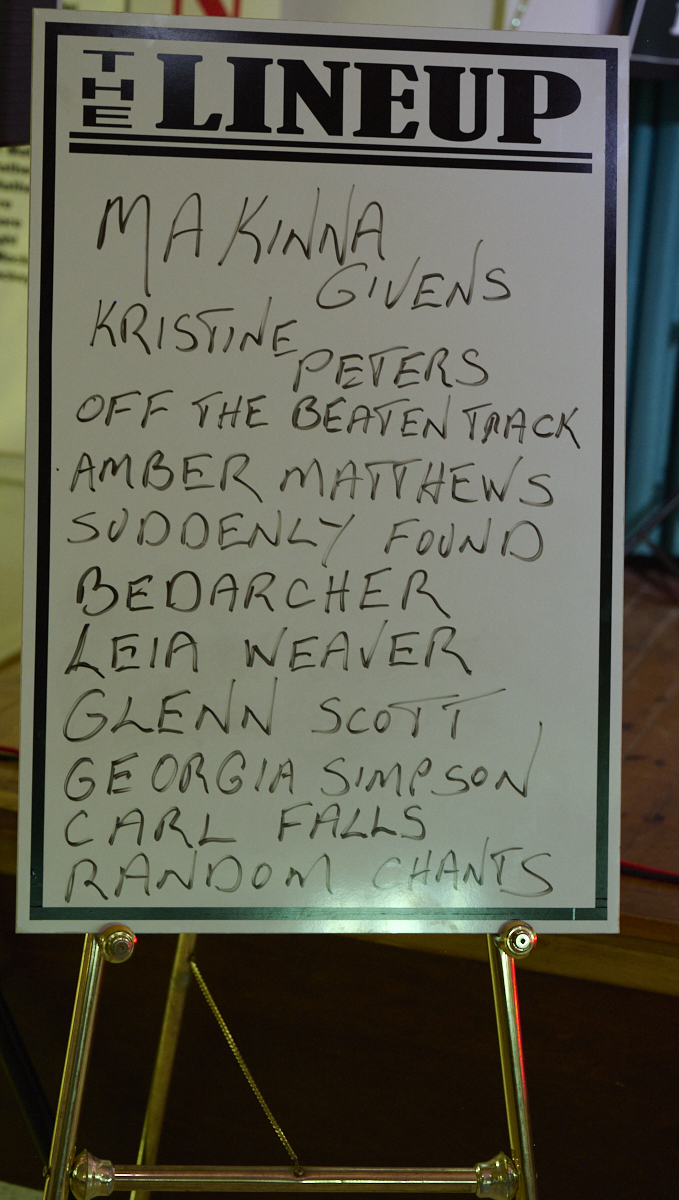 THE LINEUP
MAKINNA
GIVENS
KRISTINE
PETERS
OFF THE BEATEN TRACK
AMBER MATTHEWS
SUDDENLY FOUND
BEDARCHER
LEIA WEAVER
GLENN SCOTT
GEORGIA SIMPSON
CARL FALLS
RANDOM CHANTS